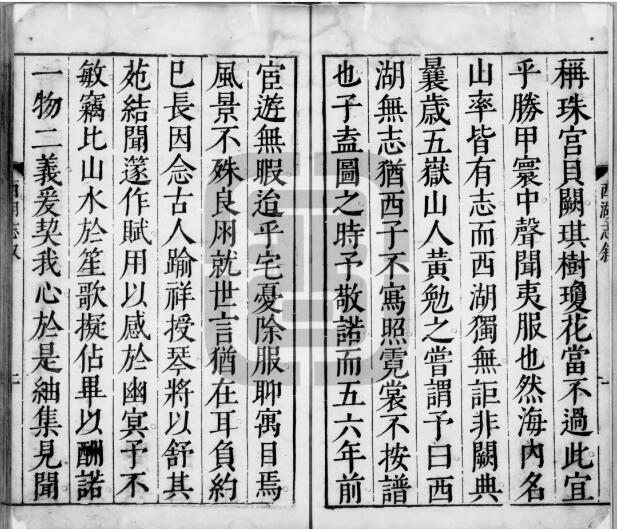 稱珠宫貝闕琪樹瓊花當不過此宜
乎勝甲寰中聲聞夷服也然海内名
山率皆有志而西湖獨無詎非闕典
曩歲五嶽山人黃勉之嘗謂予曰西
湖無志猶西子不寫照霓裳不按譜
也子盍圖之時予敬諾而五六年前
宦遊無暇迨乎宅憂除服聊寓目焉
風景不殊良朋就世言猶在耳負約
已長因念古人踰祥授琴將以舒其
苑結聞篴作賦用以感於幽冥予不
敏竊比山水於笙歌擬佔畢以酬諾
一物二義爰契我心於是紬集見聞
西湖志敘